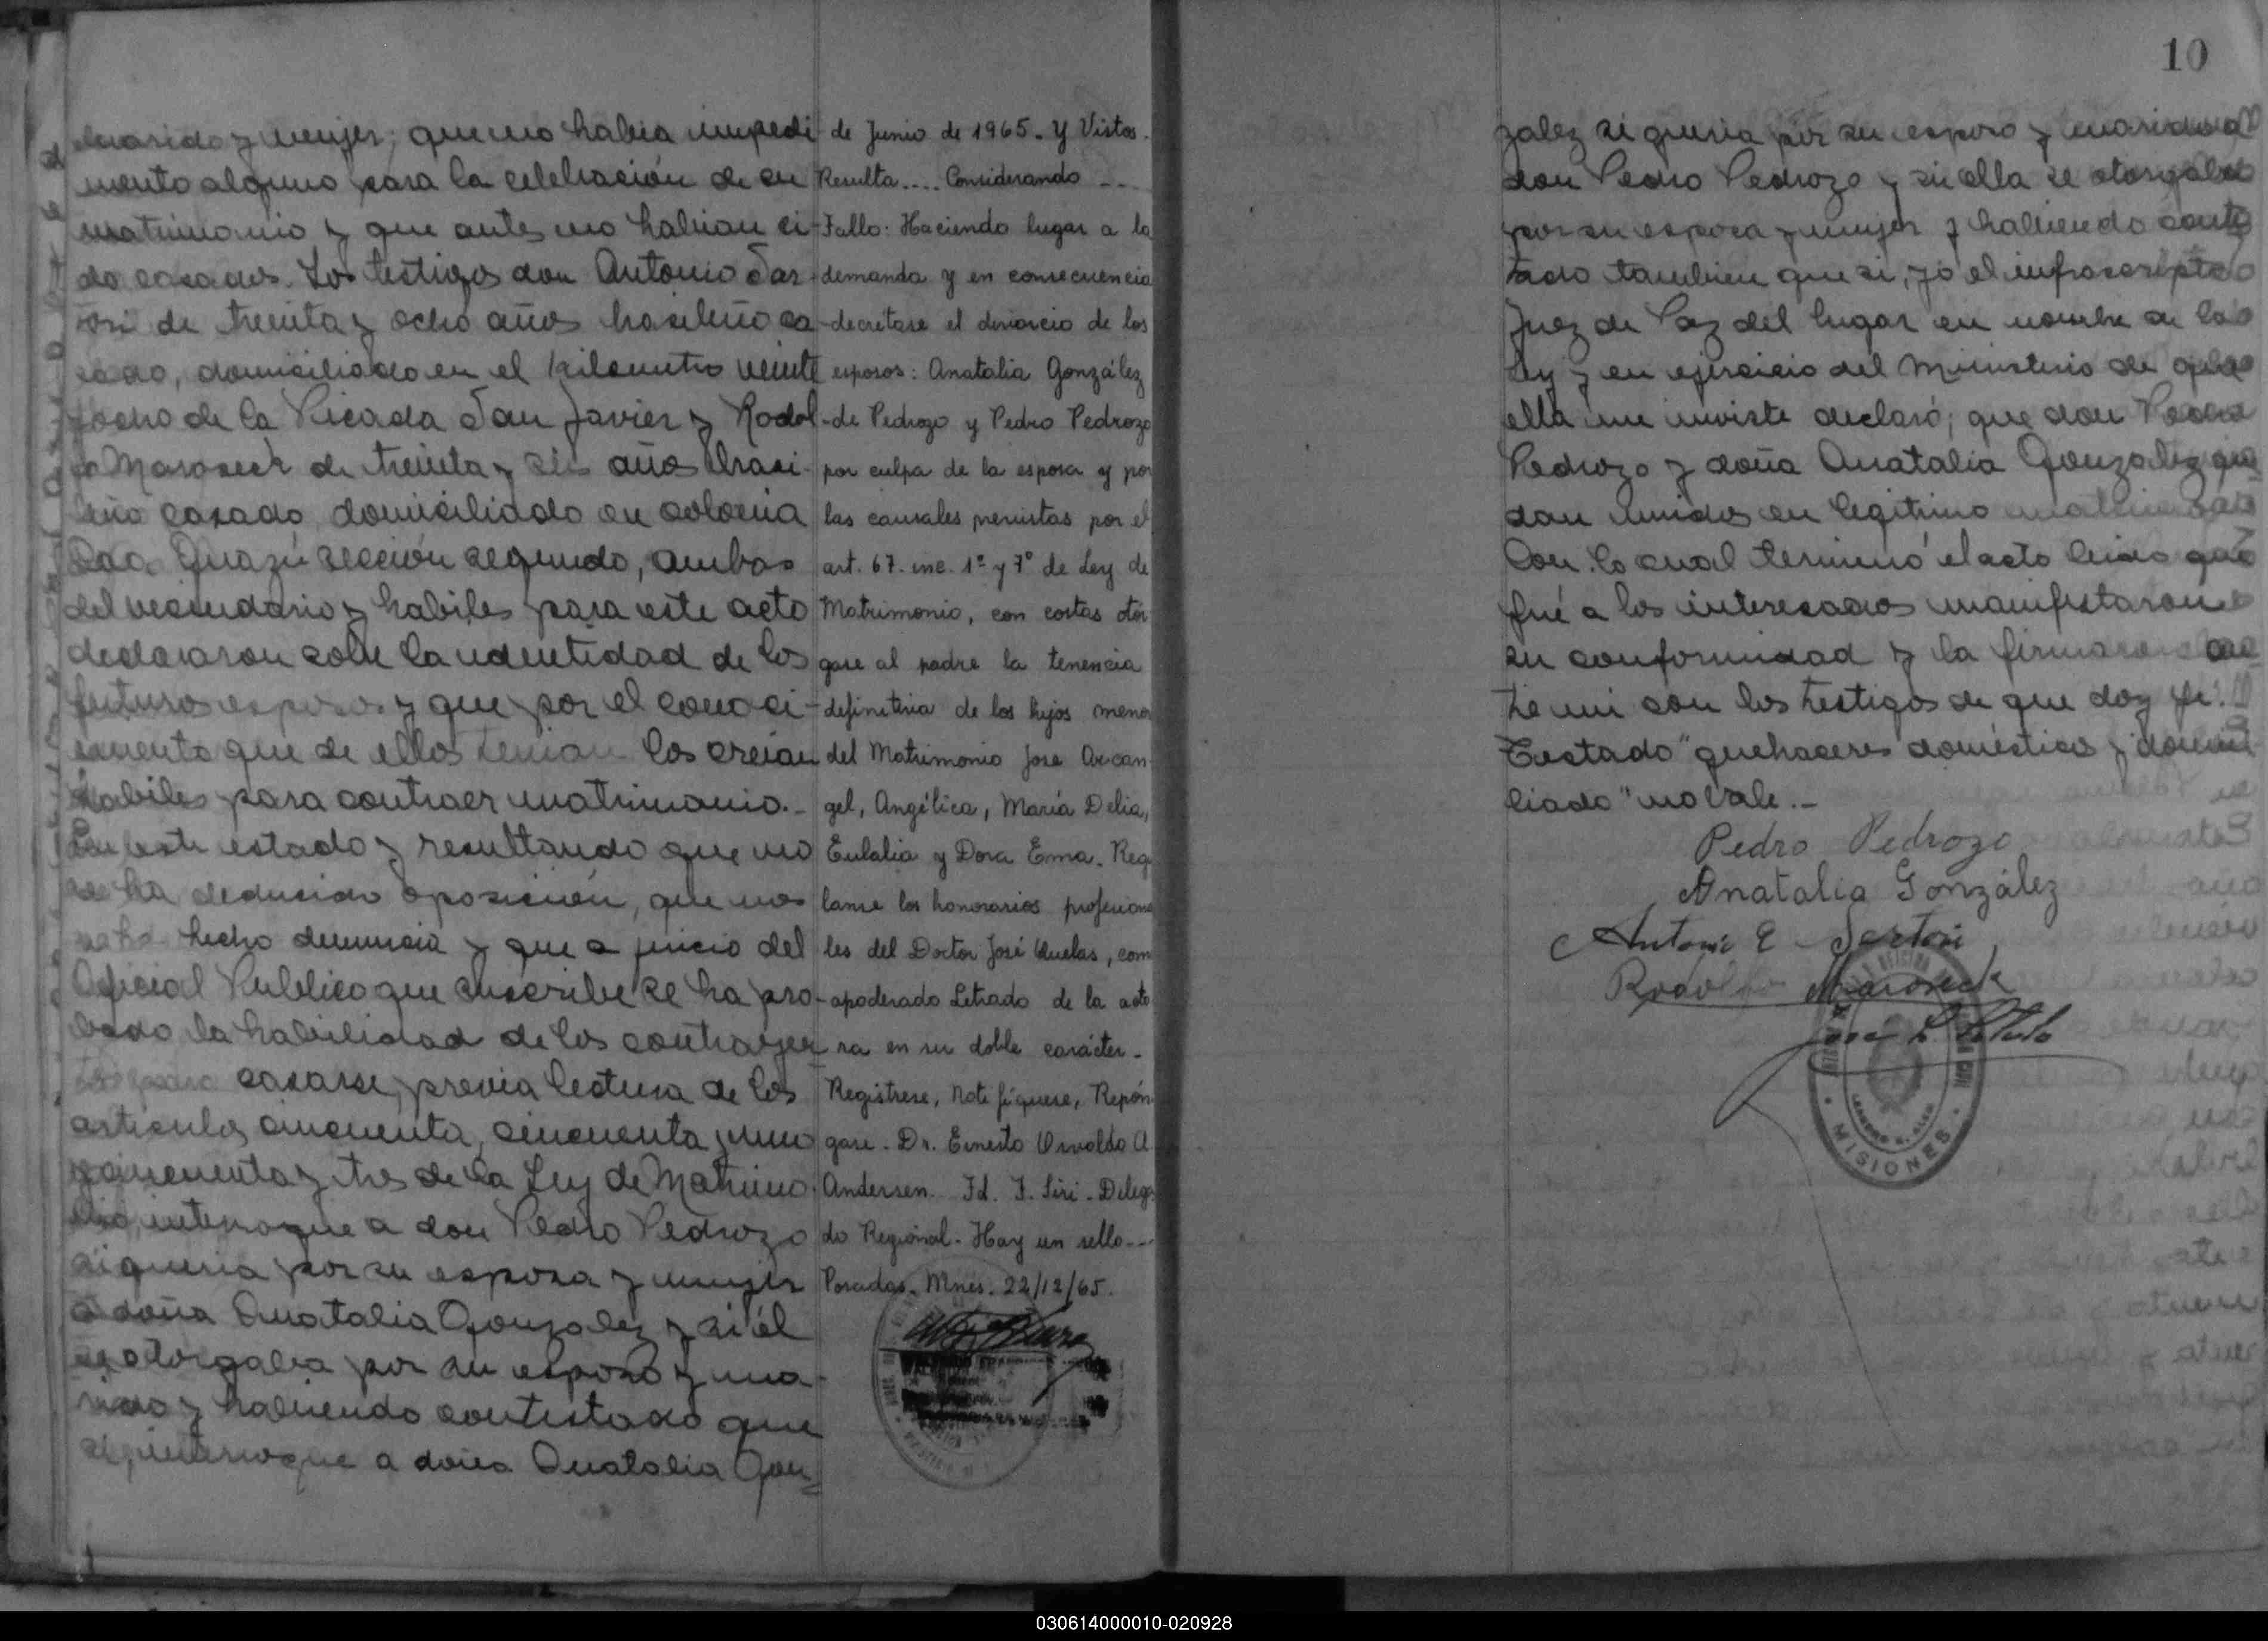 marido y mujer; que no habia impedi
mento alguno para la celebración de su
matrimonio y que antes no habian si
do casados. Los testigos don Antonio Sar
tori de treinta y ocho años brasileño ca
sado, domiciliado en el kilometro veinte
y ocho de la Picada San Javier y Rodol
fo Maroseck de treinta y seis años brasi
leño casado domiciliado en colonia
Guazú sección segunda, ambos
del vecindario y habiles para este acto
declararon sobre la identidad de los
futuros esposos y que por el conoci
miento que de ellos tenian los creian
habiles para contraer matrimonio.-
En este estado y resultando que no
se ha deducido oposición, que no
se ha hecho denuncia y que a juicio del
Oficial Publico que suscribe se ha pro
bado la habilidad de los contrayen
tes para casarse, previa lectura de los
articulos cincuenta, cincuenta y uno
y cincuenta y tres de la Ley de Matrimo
nio, interroque a don Pedro Pedrozo
si queria por su esposa y mujer
a doña Anatalia Gonzalez y si él
se otorgaba por su esposo y ma
rido y habiendo contestado que
si, interroque a doña Anatalia Gon
de Junio de 1965. Y Vistos.
Resulta.... Considerando ...
Fallo: Haciendo lugar a la
demanda y en consecuencia
decretase el divorcio de los
esposos: Anatalia González
de Pedrozo y Pedro Pedrozo
por culpa de la esposa y por
las causales previstas por el
art. 67. inc. 1º y 7º de Ley de
Matrimonio, con costas otor
gase al padre la tenencia
definitiva de los hijos meno
del Matrimonio José Arcan
gel, Angélica, María Delia,
Eulalia y Dora Ema. Reg
lanse los honorarios profesiona
les del Doctor José Quelas, com
apoderado Letrado de la acto
ra en su doble carácter.
Registrese, Notifíquese, Repón
gase. Dr. Ernesto Osvaldo A
Andersen. Fd. F. Siri. Delega
do Regional. Hay un sello...
Posadas. Mnes. 22/12/65.
10
zalez si queria por su esposo y marido a
don Pedro Pedrozo y si ella se otorgaba
por su esposa y mujer y habiendo contes
tado tambien que si, yo el infrascripto
Juez de Paz del lugar en nombre de la
Ley y en ejercicio del Ministerio de que
ella me inviste declaró; que don Pedro
Pedrozo y doña Anatalia Gonzalez que
dan unidos en legitimo matrimonio
Con lo cual terminó el acto leida que
fué a los interesados manifestaron
su conformidad y la firmaron an
te mi con los testigos de que doy fé.
Testado "quehaceres domésticos y domici
liado" no vale.-
Pedro Pedrozo
Anatalia González
Antonio E Sartori
Rodolfo Maroseck
MISIONES
030614000010-020928